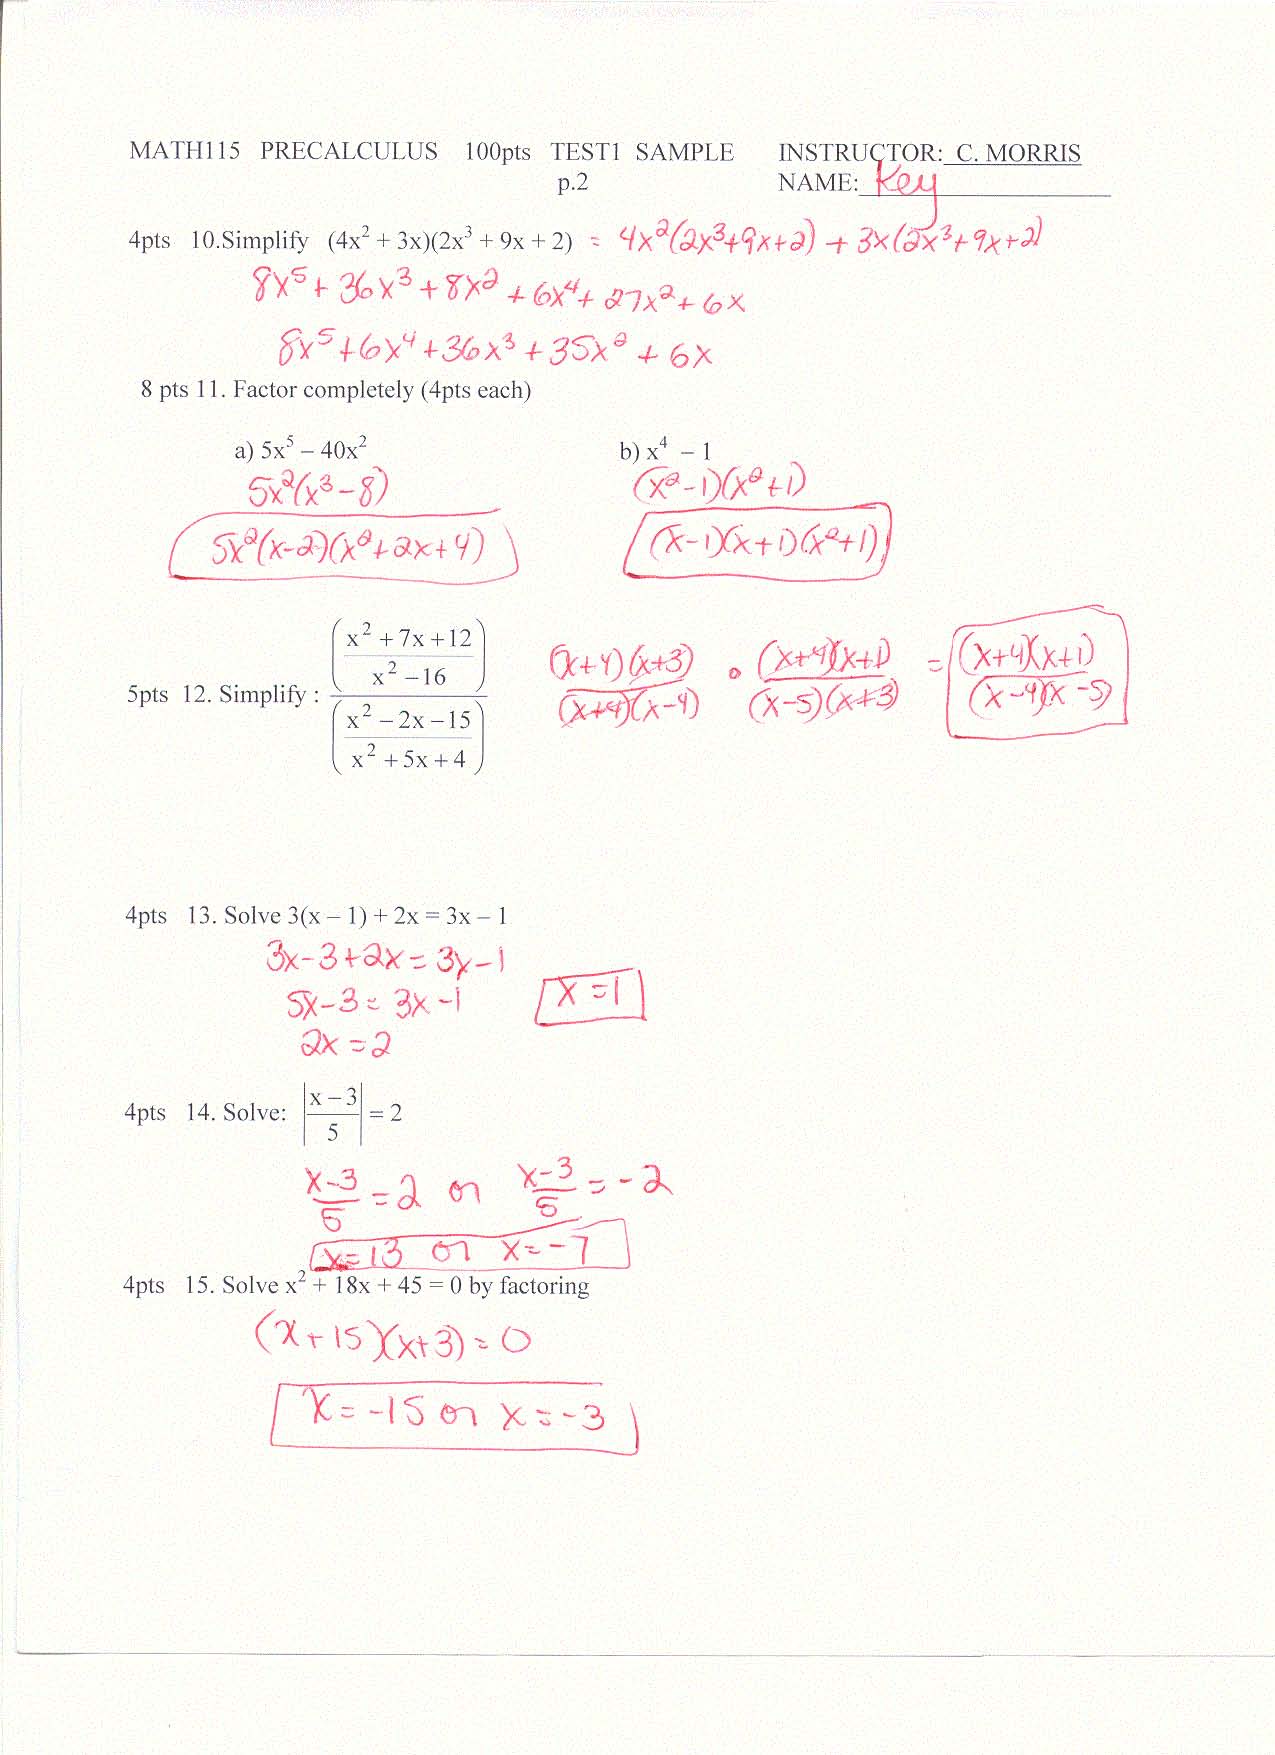 MATH115 PRECALCULUS 100pts TEST1 SAMPLE INSTRUCTOR: C. MORRIS
p.2 NAME: Key
4pts 10.Simplify (4x² + 3x)(2x³ + 9x + 2) = 4x²(2x³+9x+2) + 3x(2x³+9x+2)
8x⁵ + 36x³ + 8x² + 6x⁴ + 27x² + 6x
8x⁵ + 6x⁴ + 36x³ + 35x² + 6x
8 pts 11. Factor completely (4pts each)
a) 5x⁵ – 40x² b) x⁴ – 1
5x²(x³ – 8) (x²-1)(x²+1)
5x²(x-2)(x²+2x+4) (x-1)(x+1)(x²+1)
5pts 12. Simplify : ((x² + 7x + 12)/(x² – 16)) / ((x² – 2x – 15)/(x² + 5x + 4)) (x+4)(x+3)/(x+4)(x-4) • (x+4)(x+1)/(x-5)(x+3) = (x+4)(x+1)/(x-4)(x-5)
4pts 13. Solve 3(x – 1) + 2x = 3x – 1
3x-3+2x = 3x-1
5x-3 = 3x-1 x = 1
2x = 2
4pts 14. Solve: |(x – 3)/5| = 2
(x-3)/5 = 2 or (x-3)/5 = -2
x = 13 or x = -7
4pts 15. Solve x² + 18x + 45 = 0 by factoring
(x+15)(x+3) = 0
x = -15 or x = -3